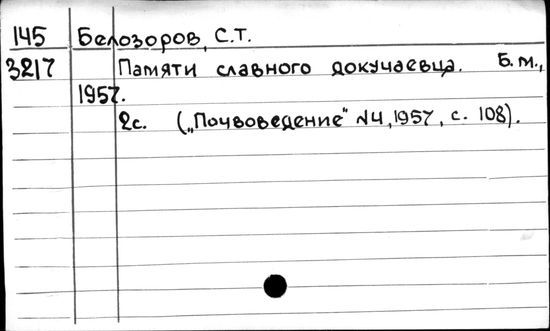 145 Белозоров, С.Т.
3217 Памяти славного докучаевца. Б.м.,
1957.
2с. („Почвоведение" №4, 1957, с. 108).